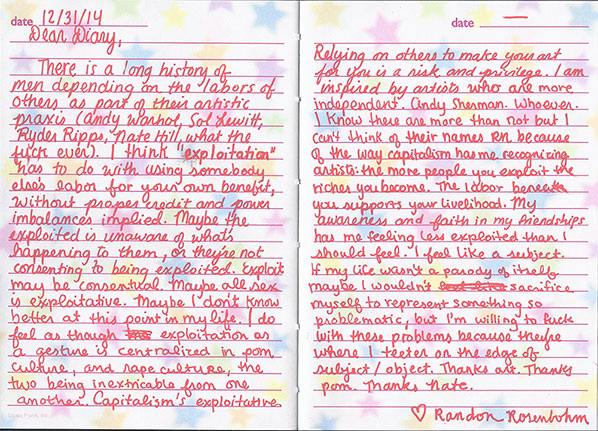 date 12/31/14
Dear Diary,
There is a long history of
men depending on the labors of
others as part of their artistic
praxis (Andy Warhol, Sol Lewitt,
Ryder Ripps, Nate Hill, what the
fuck ever). I think "exploitation"
has to do with using somebody
else's labor for your own benefit,
without proper credit and power
imbalances implied. Maybe the
exploited is unaware of what's
happening to them, or they're not
consenting to being exploited. Exploit
may be consentual. Maybe all sex
is exploitative. Maybe I don't know
better at this point in my life. I do
feel as though exploitation as
a gesture is centralized in porn
culture, and rape culture, the
two being inextricable from one
another. Capitalism's exploitative
date —
Relying on others to make your art
for you is a risk and privilege. I am
inspired by artists who are more
independent. Cindy Sherman. Whoever.
I know there are more than not but I
can't think of their names RN because
of the way capitalism has me recognizing
artists: the more people you exploit the
richer you become. The labor beneath
you supports your livelihood. My
awareness and faith in my friendships
has me feeling less exploited than I
should feel. I feel like a subject.
If my life wasn't a parody of itself
maybe I wouldn't sacrifice
myself to represent something so
problematic, but I'm willing to fuck
with these problems because they're
where I teeter on the edge of
subject / object. Thanks art. Thanks
porn. Thanks Nate.
♡ Randon Rosenbohm